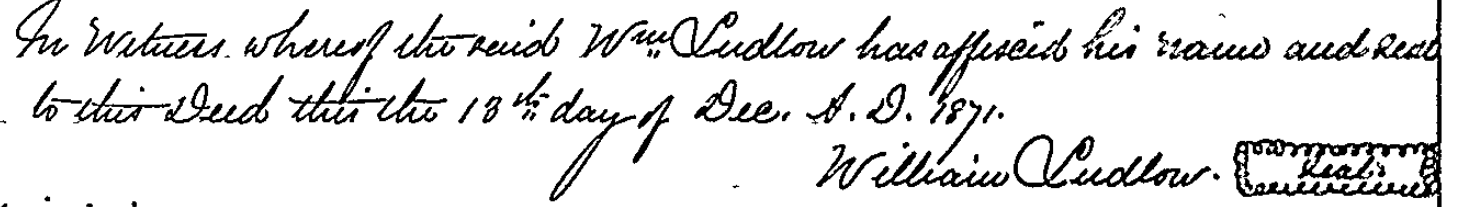 In Witness whereof the said Wm Ludlow has affixed his name and seal
to this Deed this the 13th day of Dec. A. D. 1871.
William Ludlow. Seal